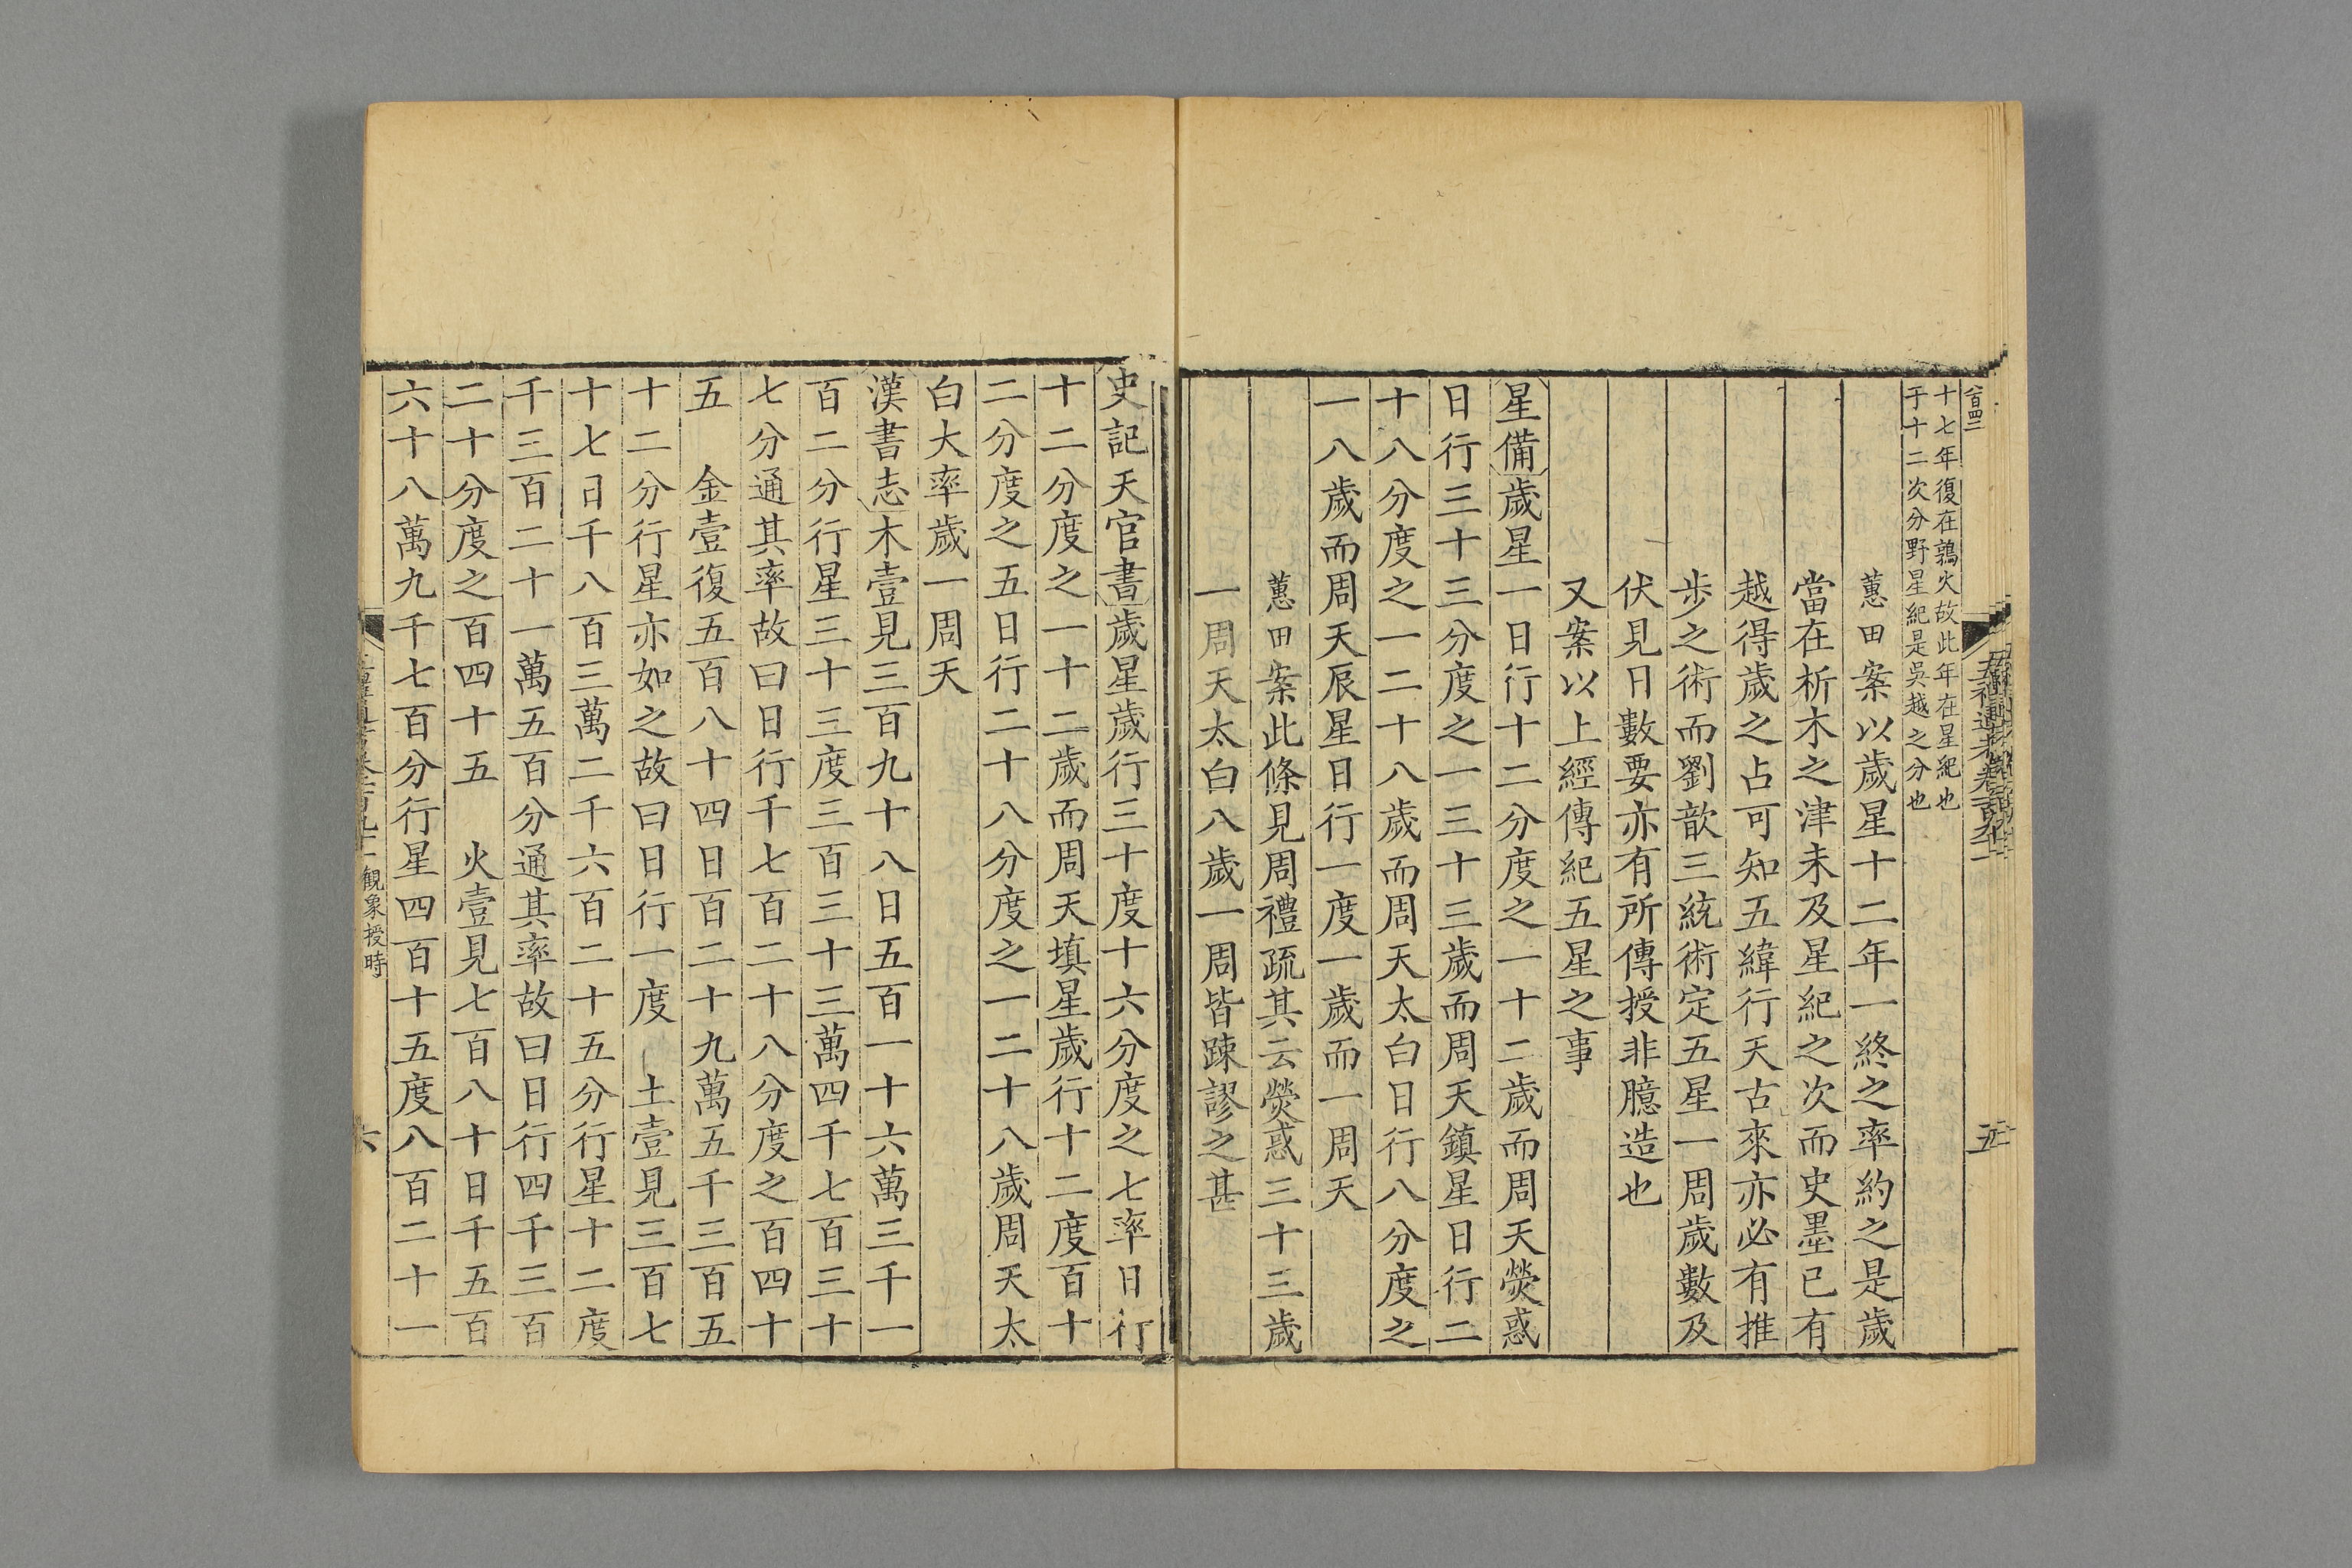 十七年復在鶉火故此年在星紀也
于十二次分野星紀是吳越之分也
蕙田案以歲星十二年一終之率約之是歲
當在析木之津未及星紀之次而史墨已有
越得歲之占可知五緯行天古來亦必有推
步之術而劉歆三統術定五星一周歲數及
伏見日數要亦有所傳授非臆造也
又案以上經傳紀五星之事
星備歲星一日行十二分度之一十二歲而周天熒惑
日行三十三分度之一三十三歲而周天鎮星日行二
十八分度之一二十八歲而周天太白日行八分度之
一八歲而周天辰星日行一度一歲而一周天
蕙田案此條見周禮疏其云熒惑三十三歲
一周天太白八歲一周皆踈謬之甚
五
史記天官書歲星歲行三十度十六分度之七率日行
十二分度之一十二歲而周天填星歲行十二度百十
二分度之五日行二十八分度之一二十八歲周天太
白大率歲一周天
漢書志木壹見三百九十八日五百一十六萬三千一
百二分行星三十三度三百三十三萬四千七百三十
七分通其率故曰日行千七百二十八分度之百四十
五 金壹復五百八十四日百二十九萬五千三百五
十二分行星亦如之故曰日行一度 土壹見三百七
十七日千八百三萬二千六百二十五分行星十二度
千三百二十一萬五百分通其率故曰日行四千三百
二十分度之百四十五 火壹見七百八十日千五百
六十八萬九千七百分行星四百十五度八百二十一
觀象授時
六